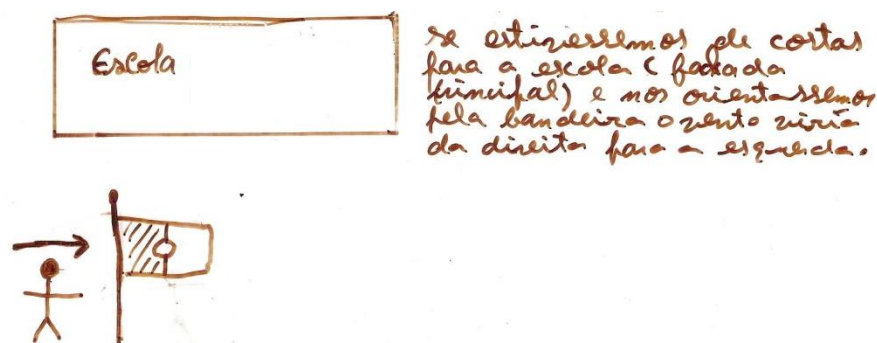 Escola
se estivessemos de costas
para a escola (fachada
principal) e nos orientassemos
pela bandeira o vento viria
da direita para a esquerda.